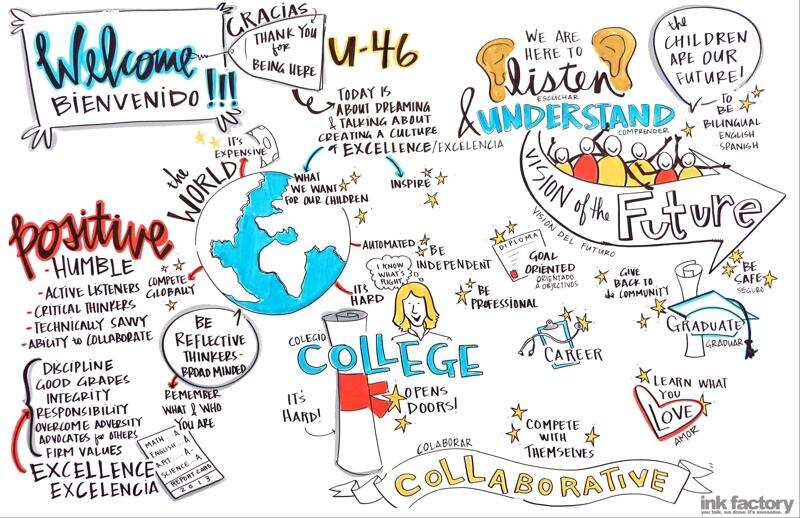 Welcome
BIENVENIDO !!!
GRACIAS
THANK YOU
for
BEING HERE
U-46
TODAY IS
ABOUT DREAMING
& TALKING ABOUT
CREATING A CULTURE
of EXCELLENCE/EXCELENCIA
WHAT
WE WANT
FOR OUR CHILDREN
INSPIRE
WE ARE
HERE TO
listen
ESCUCHAR
& UNDERSTAND
COMPRENDER
the
CHILDREN
ARE OUR
FUTURE!
TO
BE
BILINGUAL
ENGLISH
-SPANISH
VISION of the Future
VISION DEL FUTURO
IT'S
EXPENSIVE
the WORLD
AUTOMATED
IT'S
HARD
COMPETE
GLOBALLY
positive
-HUMBLE
-ACTIVE LISTENERS
-CRITICAL THINKERS
-TECHNICALLY SAVVY
-ABILITY to COLLABORATE
BE
REFLECTIVE
THINKERS-
BROAD MINDED
REMEMBER
WHAT & WHO
YOU ARE
DISCIPLINE
GOOD GRADES
INTEGRITY
RESPONSIBILITY
OVERCOME ADVERSITY
ADVOCATES for OTHERS
FIRM VALUES
EXCELLENCE
EXCELENCIA
MATH... A
ENGLISH... A
ART.... A-
SCIENCE... A
REPORT CARD
2013
I KNOW
WHAT'S
RIGHT
BE
INDEPENDENT
BE
PROFESSIONAL
DIPLOMA
GOAL
ORIENTED
ORIENTADO
A OBJECTIVOS
GIVE
BACK TO
the COMMUNITY
BE
SAFE
SEGURO
GRADUATE
GRADUAR
CAREER
COLEGIO
COLLEGE
IT'S
HARD!
OPENS
DOORS!
COMPETE
WITH
THEMSELVES
LEARN WHAT
YOU
LOVE
AMOR
COLABORAR
COLLABORATIVE
ink factory
you talk. we draw. it's awesome.